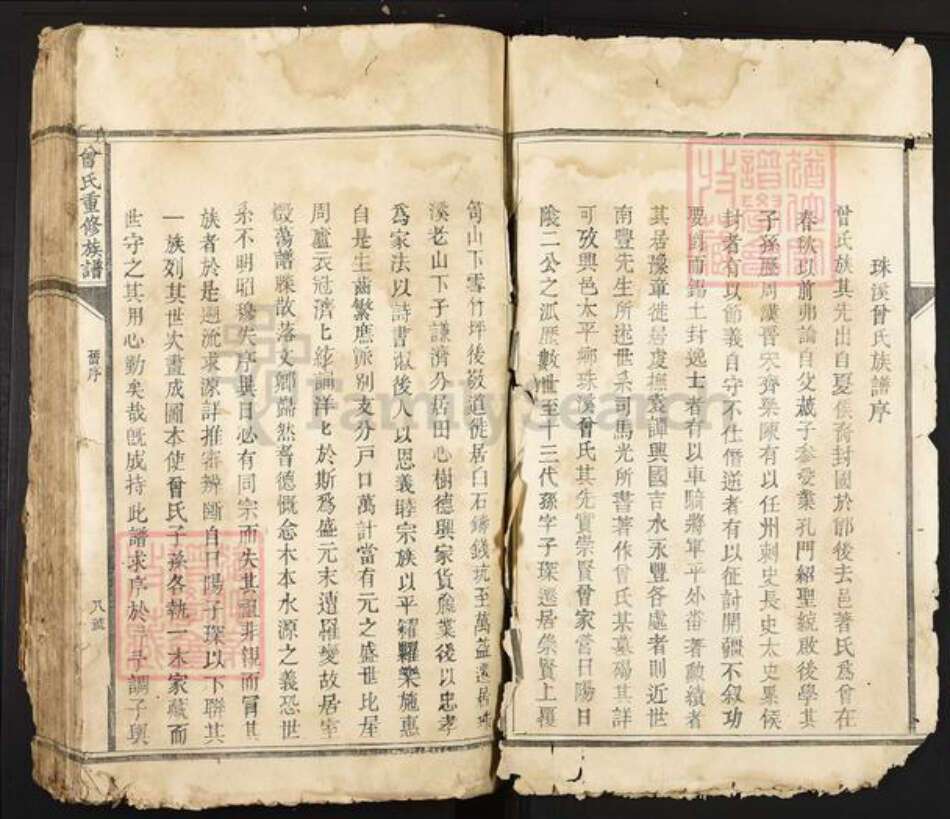 珠溪曾氏族譜序
曾氏族其先出自夏侯裔封國於鄫後去邑著氏為曾在
春秋以前弗論自父蒧子參受業孔門紹聖統啟後學其
子孫歷周漢晉宋齊梁陳有以任州刺史長史太史果候
封者有以節義自守不仕僭逆者有以征討開疆不叙功
要爵而錫土封逸士者有以車騎將軍平外番著勳績者
其居豫章徙居虔撫袁譚興國吉水永豐各處者則近世
南豐先生所述世系司馬光所書著作曾氏某墓碣其詳
可攷興邑太平鄉珠溪曾氏其先實崇賢曾家營日陽日
陰二公之派歷數世至十三代孫字子琛遷居崇賢上覆
筍山下雪竹坪後敬道徙居白石鑄錢坑至萬益遷居珠
溪老山下子謙濟分居田心樹德興家貨饒業後以忠孝
為家法以詩書淑後人以恩義睦宗族以平糶糴樂施惠
自是生齒繁庶派別支分戶口萬計當有元之盛世比屋
周廬衣冠濟匕絃誦洋匕於斯為盛元末遭羅變故居室
燬蕩譜牒散落文卿巋然耆德慨念木本水源之義恐世
系不明昭穆失序異日必有同宗而失其祖非親而冒其
族者於是遡流求源詳推審辨斷自日陽子琛以下聯其
一族列其世次畫成圖本使曾氏子孫各執一本家藏而
世守之其用心勤矣哉既成持此譜求序於予予謂子與
曾氏重修族譜
舊序
FamilySearch